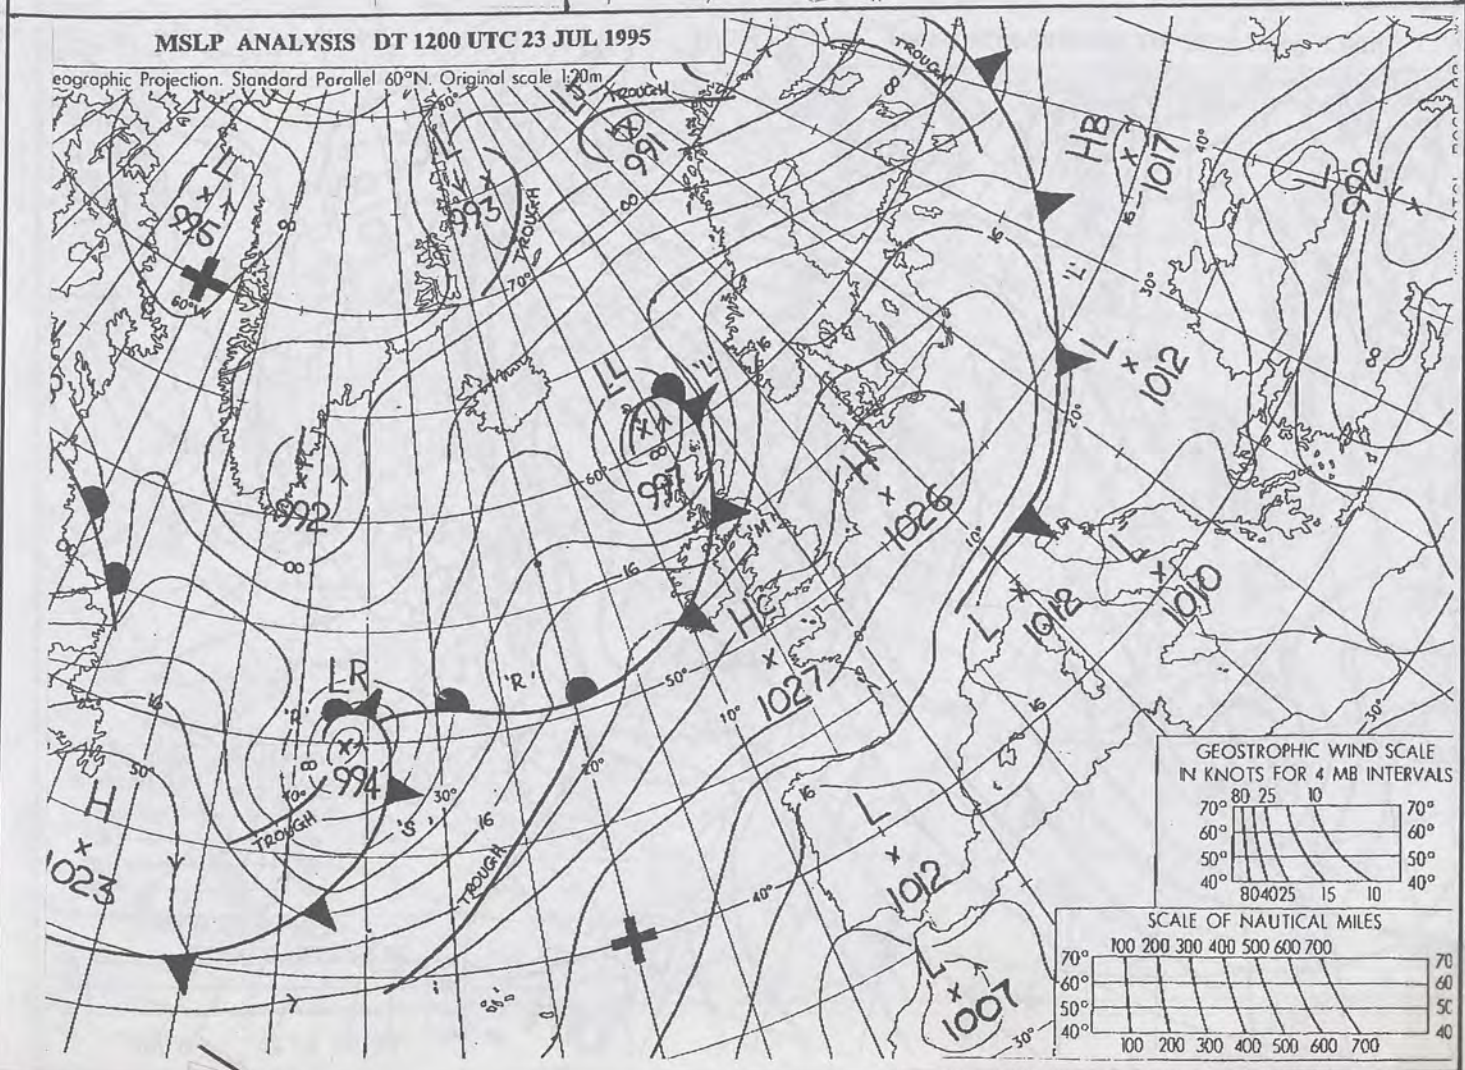 MSLP ANALYSIS DT 1200 UTC 23 JUL 1995
eographic Projection. Standard Parallel 60°N. Original scale 1:20m
80°
TROUGH
TROUGH
8
L
995
60°W
8
L
993
TROUGH
70°
991
8
HB
1017
16
40°
L
992
16
'L'
30°
L
1012
20°
8
LL
'L'
16
60°
8
991
L
992
8
H
1026
10°
'M'
16
HC
1027
50°
10°
L
1012
L
1010
16
30°
LR
'R'
'R'
994
8
40°
30°
20°
TROUGH
'S'
16
TROUGH
16
50°
H
1023
16
L
1012
40°
L
1007
30°
GEOSTROPHIC WIND SCALE
IN KNOTS FOR 4 MB INTERVALS
80 25 10
70° 70°
60° 60°
50° 50°
40° 40°
80 40 25 15 10
SCALE OF NAUTICAL MILES
100 200 300 400 500 600 700
70° 70
60° 60
50° 50
40° 40
100 200 300 400 500 600 700